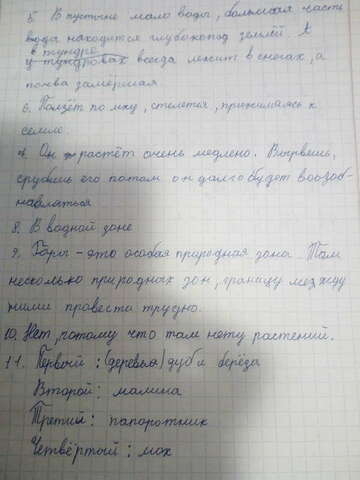 5. В пустыне мало воды, большая часть
вода находится глубоко под землёй. А
в тундре
у тундровах всегда лежит в снегах, а
почва замёрзшая
6. Ползёт по мху, стелется, прижимаясь к
семлю.
7. Он растёт очень медлено. Вырвешь,
срубишь его потам он далго будет возоб-
навляться
8. В водной зоне
9. Горы - это особая природная зона. Там
несколько природных зон, границу между
ними провести трудно.
10. Нет, потому что там нету растений.
11. Первый: (деревья) дуб и берёза
Второй: малина
Третий: папоротник
Четвёртый: мох